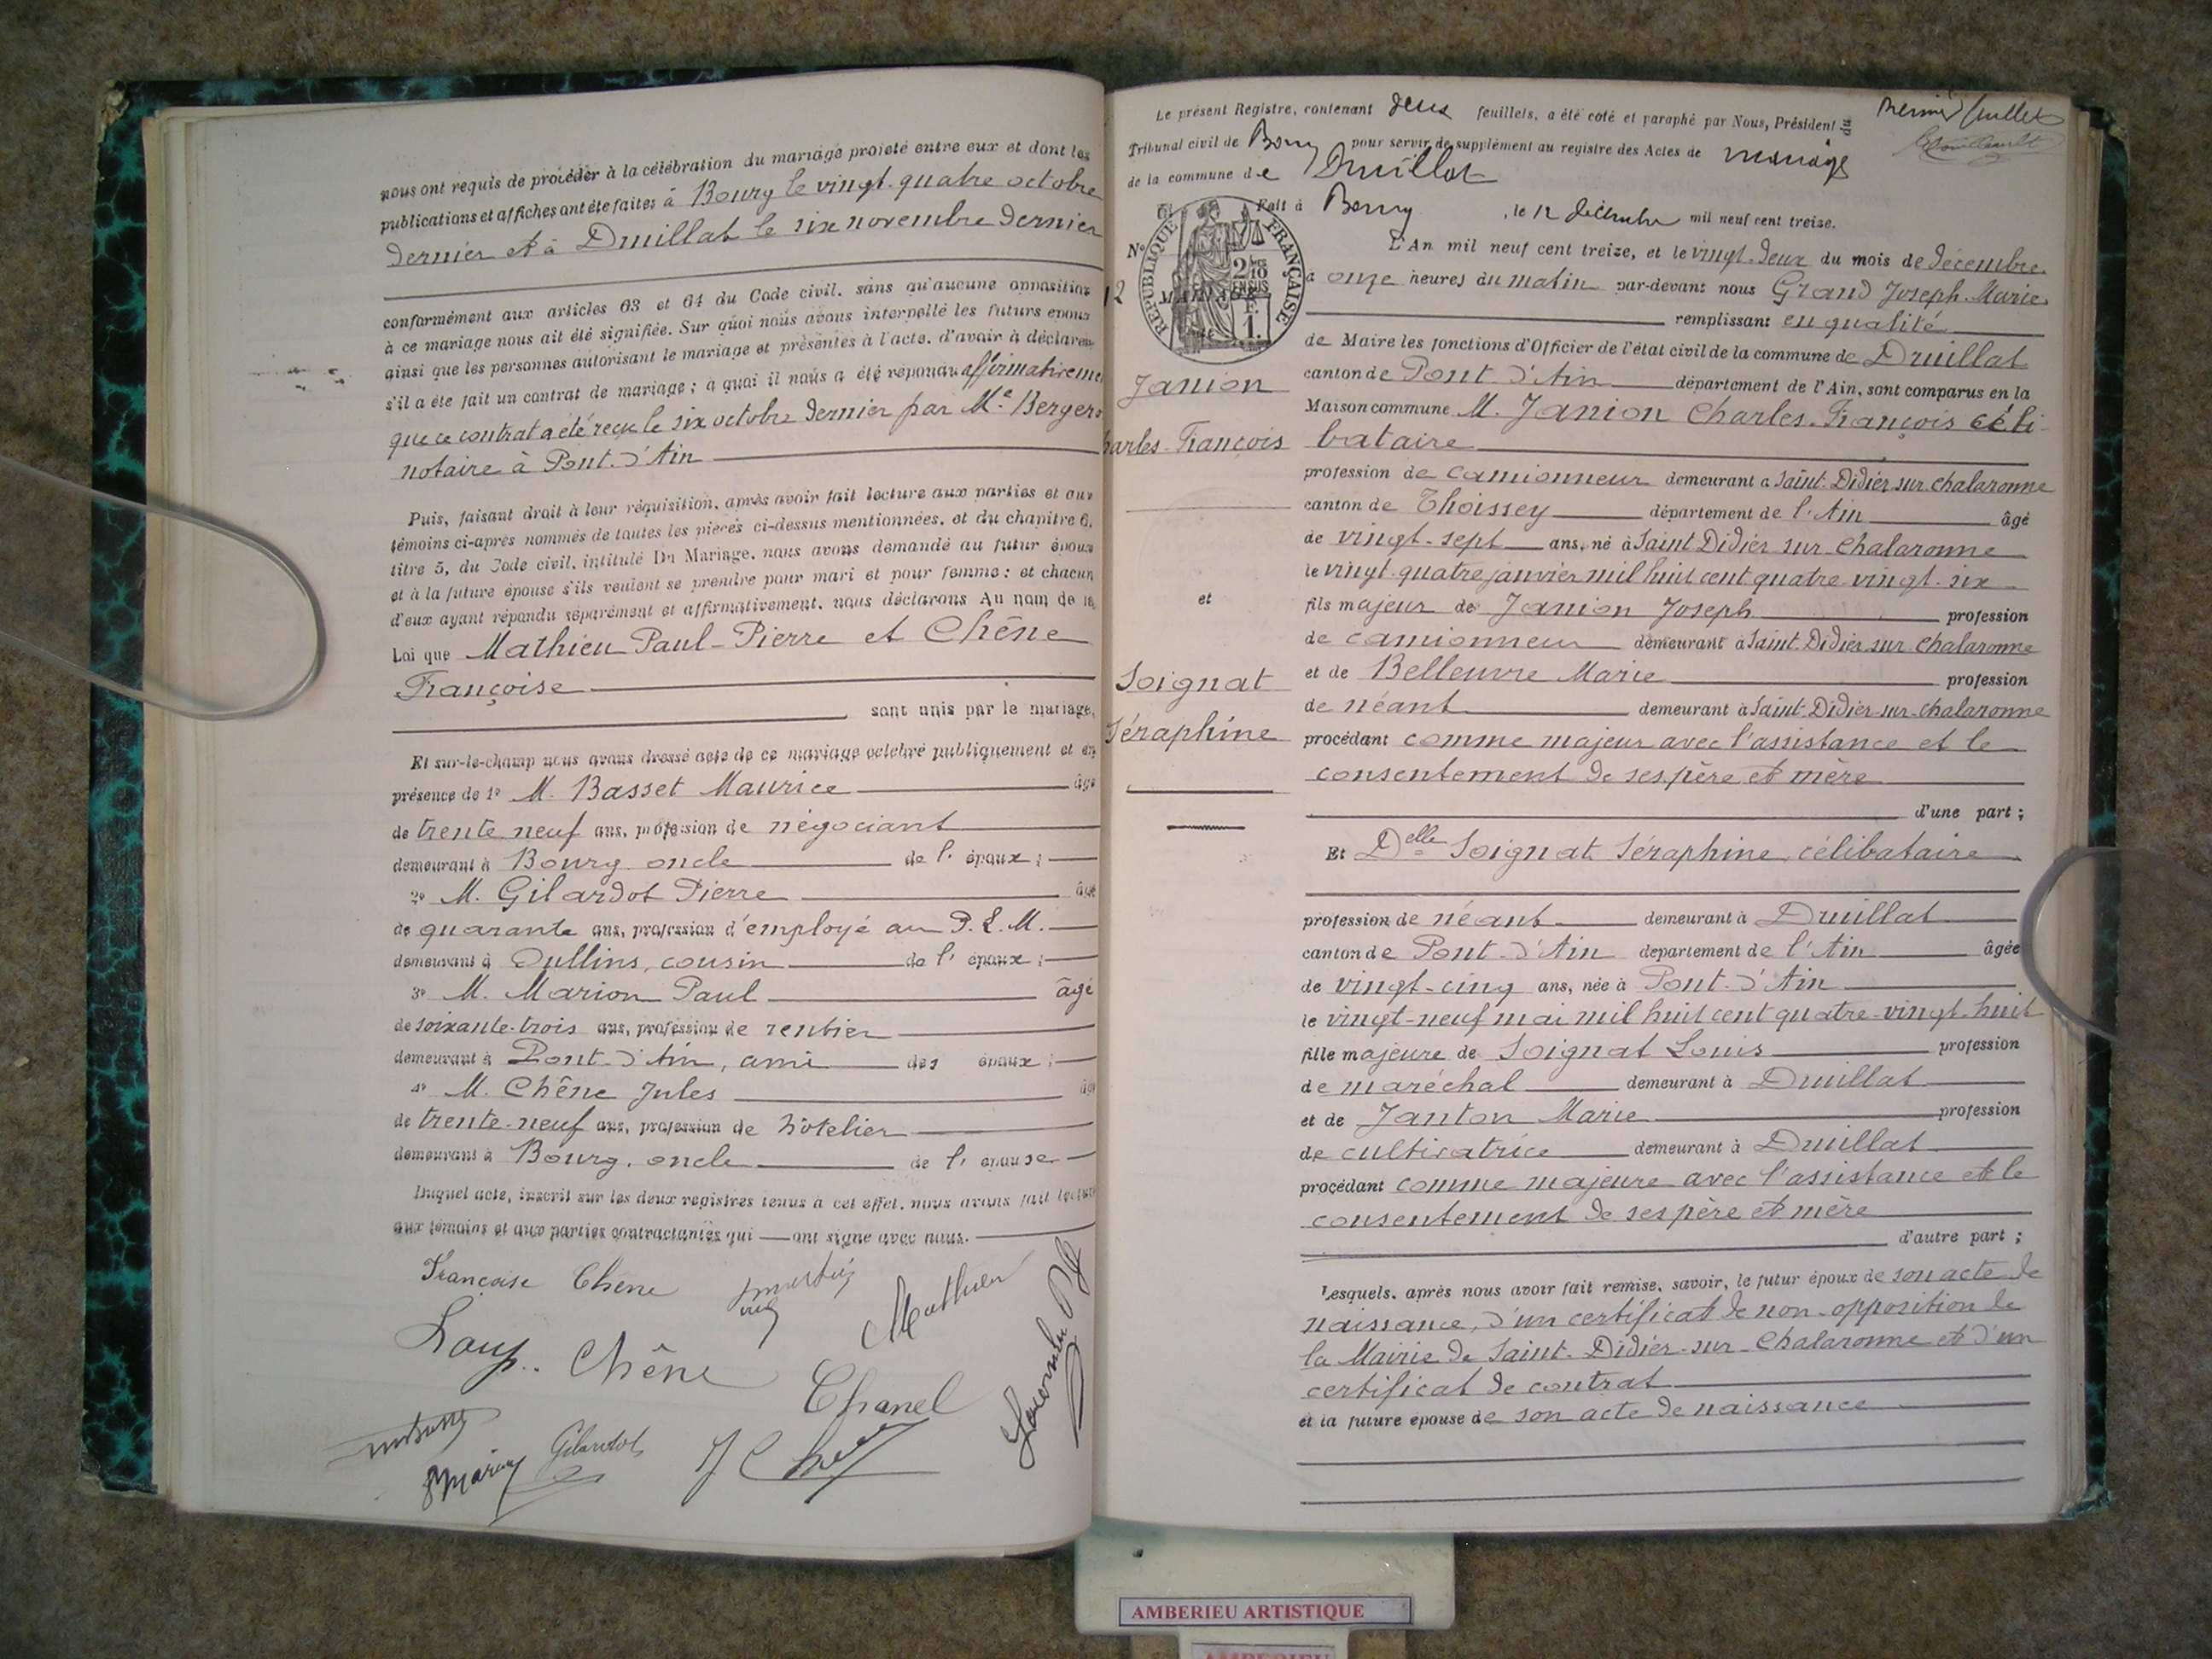 nous ont requis de procéder à la célébration du mariage projeté entre eux et dont les
publications et affiches ont été faites à Bourg le vingt-quatre octobre
dernier et à Druillat le six novembre dernier
conformément aux articles 63 et 64 du Code civil, sans qu'aucune opposition
à ce mariage nous ait été signifiée. Sur quoi nous avons interpellé les futurs époux
ainsi que les personnes autorisant le mariage et présentes à l'acte, d'avoir à déclarer
s'il a été fait un contrat de mariage ; à quoi il nous a été répondu affirmativement
que ce contrat a été reçu le six octobre dernier par Me Berger
notaire à Pont-d'Ain
Puis, faisant droit à leur réquisition, après avoir fait lecture aux parties et aux
témoins ci-après nommés de toutes les pièces ci-dessus mentionnées, et du chapitre 6,
titre 5, du Code civil, intitulé Du Mariage, nous avons demandé au futur époux
et à la future épouse s'ils veulent se prendre pour mari et pour femme ; et chacun
d'eux ayant répondu séparément et affirmativement, nous déclarons Au nom de la
Loi que Mathieu Paul-Pierre et Chêne
Françoise
sont unis par le mariage.
Et sur-le-champ nous avons dressé acte de ce mariage célébré publiquement et en
présence de 1° M. Basset Maurice âgé
de trente neuf ans, profession de négociant
demeurant à Bourg, oncle de l' époux ;
2° M. Gilardot Pierre âgé
de quarante ans, profession d'employé au P. L. M.
demeurant à Oullins, cousin de l' époux ;
3° M. Marion Paul âgé
de soixante-trois ans, profession de rentier
demeurant à Pont-d'Ain, ami des époux ;
4° M. Chêne Jules âgé
de trente-neuf ans, profession de hôtelier
demeurant à Bourg, oncle de l' épouse
Duquel acte, inscrit sur les deux registres tenus à cet effet, nous avons fait lecture
aux témoins et aux parties contractantes qui ont signé avec nous.
Françoise Chêne
Mathieu
Chêne
Chanel
Gilardot
Le présent Registre, contenant deux feuillets, a été coté et paraphé par Nous, Président du
Premier feuillet
Tribunal civil de Bourg pour servir de supplément au registre des Actes de mariage
de la commune de Druillat
Fait à Bourg, le 12 décembre mil neuf cent treize.
RÉPUBLIQUE FRANÇAISE
N°
12
L'An mil neuf cent treize, et le vingt-deux du mois de décembre
à onze heures du matin par-devant nous Grand Joseph-Marie
remplissant en qualité
de Maire les fonctions d'Officier de l'état civil de la commune de Druillat
canton de Pont-d'Ain département de l'Ain, sont comparus en la
Janion
Maison commune M. Janion Charles-François céli-
harles-François
bataire
profession de camionneur demeurant à Saint-Didier-sur-Chalaronne
canton de Thoissey département de l'Ain âgé
de vingt-sept ans, né à Saint Didier-sur-Chalaronne
le vingt-quatre janvier mil huit cent quatre-vingt-six
et
fils majeur de Janion Joseph profession
de camionneur demeurant à Saint-Didier-sur-Chalaronne
Soignat
et de Belleuvre Marie profession
de néant demeurant à Saint-Didier-sur-Chalaronne
Séraphine
procédant comme majeur avec l'assistance et le
consentement de ses père et mère
d'une part ;
Et Delle Soignat Séraphine, célibataire
profession de néant demeurant à Druillat
canton de Pont-d'Ain département de l'Ain âgée
de vingt-cinq ans, née à Pont-d'Ain
le vingt-neuf mai mil huit cent quatre-vingt-huit
fille majeure de Soignat Louis profession
de maréchal demeurant à Druillat
et de Janton Marie profession
de cultivatrice demeurant à Druillat
procédant comme majeure avec l'assistance et le
consentement de ses père et mère
d'autre part ;
Lesquels, après nous avoir fait remise, savoir, le futur époux de son acte de
naissance, d'un certificat de non-opposition de
la Mairie de Saint-Didier-sur-Chalaronne et d'un
certificat de contrat
et la future épouse de son acte de naissance
AMBERIEU ARTISTIQUE
AMBERIEU